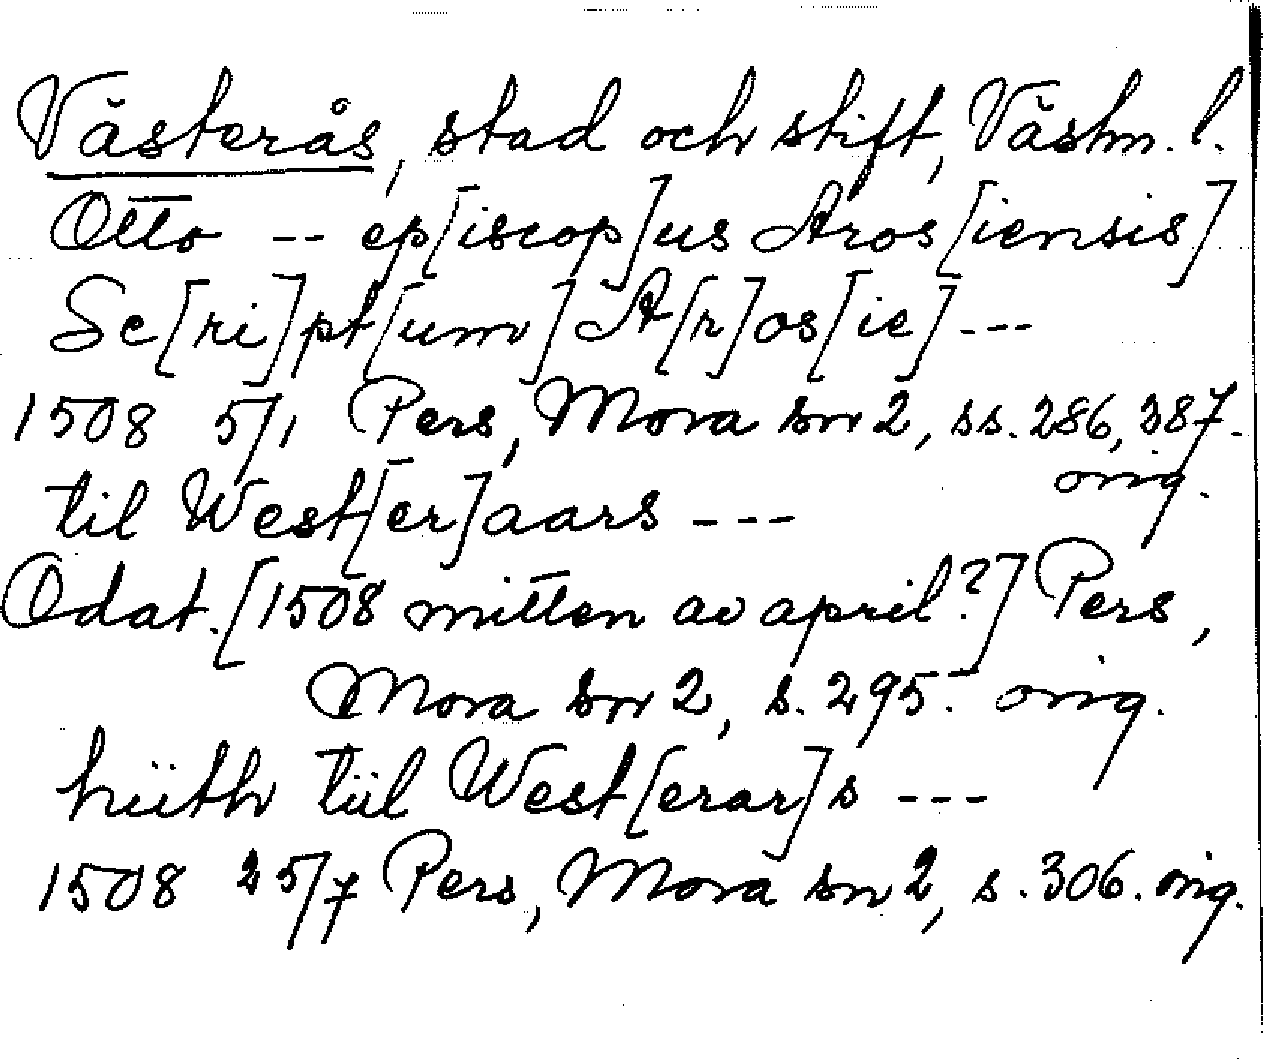 Västerås, stad och stift, Västm. l.
Otto -- ep[iscop]us Aros[iensis]
Sc[ri]pt[um] A[r]os[ie] ---
1508 5/1 Pers, Mora sn 2, ss. 286, 387.
orig.
til West[er]aars ---
Odat. [1508 mitten av april?] Pers,
Mora sn 2, s. 295. orig.
hiith tiil West[erar]s ---
1508 25/7 Pers, Mora sn 2, s. 306. orig.